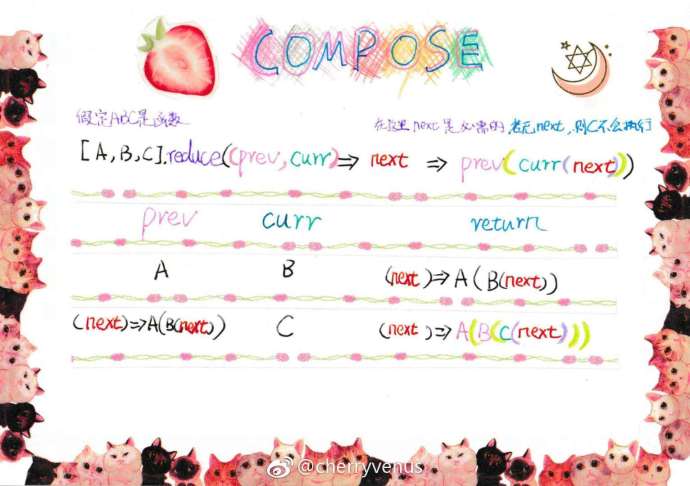 COMPOSE
假定ABC是函数
在这里next是必需的,若无next,则C不会执行
[A,B,C].reduce((prev,curr)⇒ next ⇒ prev(curr(next)))
prev curr return
A B (next)⇒A(B(next))
(next)⇒A(B(next)) C (next)⇒A(B(C(next)))
@cherryvenus